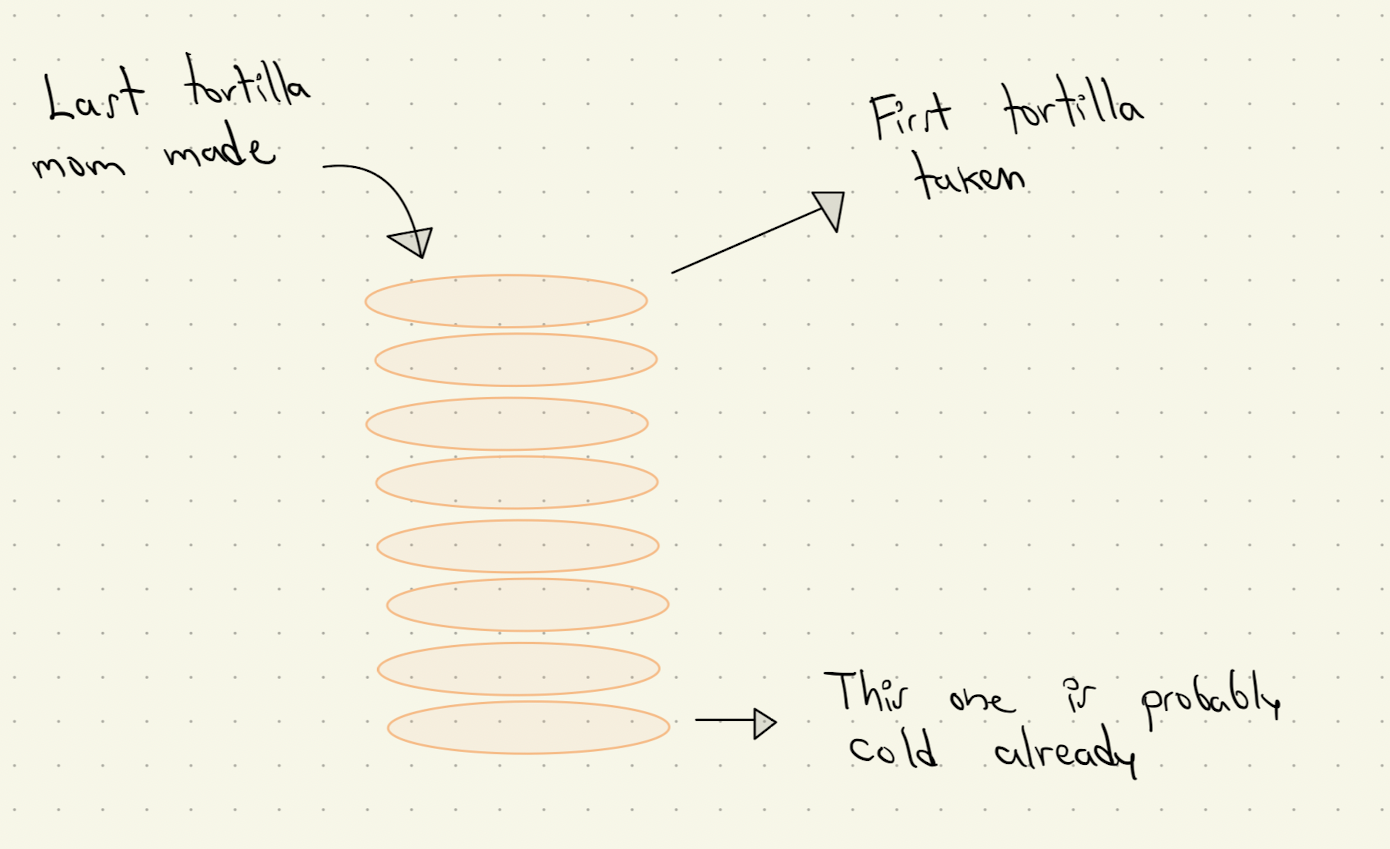 Last tortilla
mom made
First tortilla
taken
This one is probably
cold already